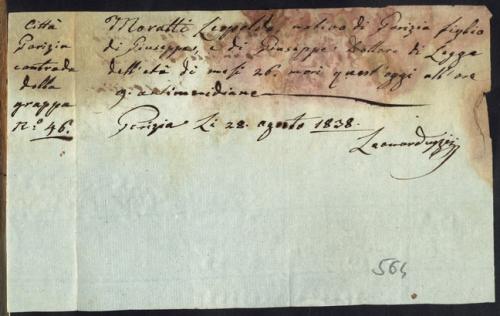 Città
Gorizia
contrada
della
grappa
N.º 46.
Moratti Leopoldo, nativo di Gorizia figlio
di Giuseppa, e di Giuseppe Dottore di Legge
dell'età di mesi 26. morì quest'oggi all'ore
9. antimeridiane
Gorizia Li 28. agosto 1838.
564